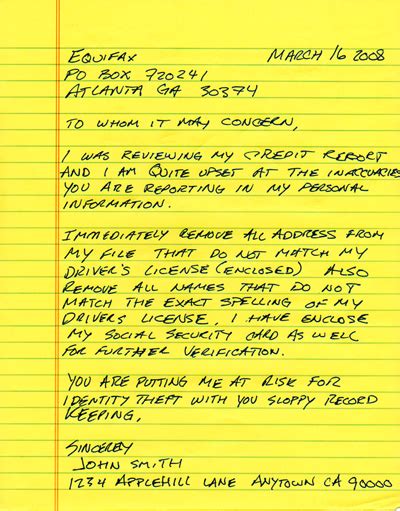 EQUIFAX MARCH 16 2008
PO BOX 720241
ATLANTA GA 30374
TO WHOM IT MAY CONCERN,
I WAS REVIEWING MY CREDIT REPORT
AND I AM QUITE UPSET AT THE INACCURARIES
YOU ARE REPORTING IN MY PERSONAL
INFORMATION.
IMMEDIATELY REMOVE ALL ADDRESS FROM
MY FILE THAT DO NOT MATCH MY
DRIVER'S LICENSE (ENCLOSED) ALSO
REMOVE ALL NAMES THAT DO NOT
MATCH THE EXACT SPELLING OF MY
DRIVERS LICENSE. I HAVE ENCLOSE
MY SOCIAL SECURITY CARD AS WELL
FOR FURTHER VERIFICATION.
YOU ARE PUTTING ME AT RISK FOR
IDENTITY THEFT WITH YOU SLOPPY RECORD
KEEPING.
SINCERELY
JOHN SMITH
1234 APPLEHILL LANE ANYTOWN CA 90000